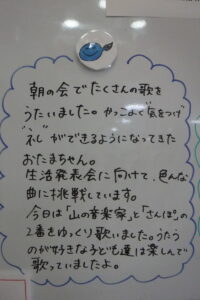 朝の会でたくさんの歌を
うたいました。かっこよく"気をつけ
"、"礼"ができるようになってきた
おたまちゃん。
生活発表会に向けて、色んな
曲に挑戦しています。
今日は「山の音楽家」と「さんぽ」の
2番をゆっくり歌いました。うたう
のが好きな子ども達は楽しんで
歌っていましたよ。